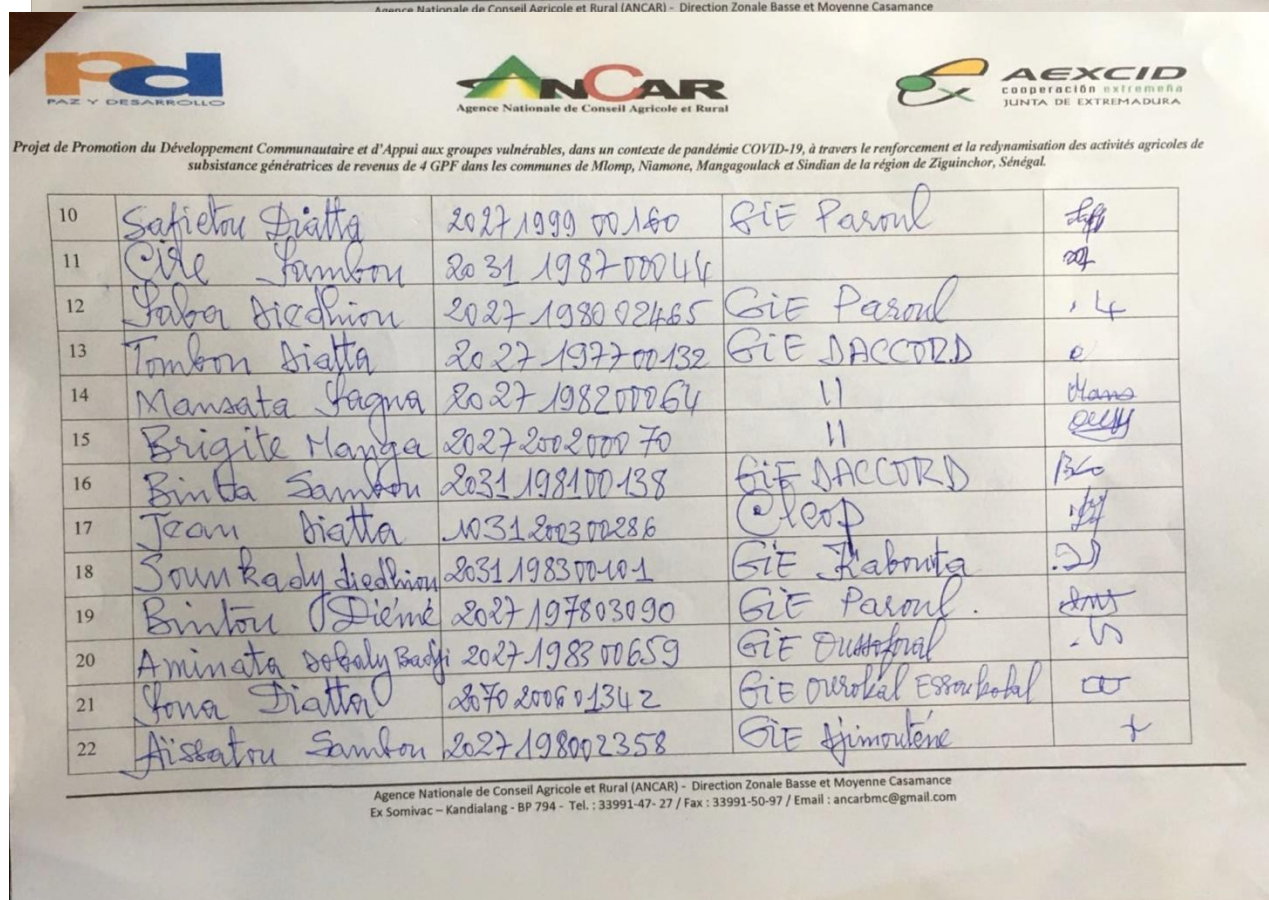 Agence Nationale de Conseil Agricole et Rural (ANCAR) - Direction Zonale Basse et Moyenne Casamance
Pd
PAZ Y DESARROLLO
ANCAR
Agence Nationale de Conseil Agricole et Rural
AEXCID
cooperación extremeña
JUNTA DE EXTREMADURA
Projet de Promotion du Développement Communautaire et d'Appui aux groupes vulnérables, dans un contexte de pandémie COVID-19, à travers le renforcement et la redynamisation des activités agricoles de
subsistance génératrices de revenus de 4 GPF dans les communes de Mlomp, Niamone, Mangagoulack et Sindian de la région de Ziguinchor, Sénégal.
10 Safietou Diatta 2027 1999 00160 GiE Paroul
11 Cire Sambou 2031 1987 00044
12 Saba Diedhiou 2027 1980 02465 GiE Paroul
13 Tombon Diatta 2027 1977 00132 GiE DACCORD
14 Mansata Sagna 2027 1982 00064 11 Mans
15 Brigite Manga 2027 2002 000 70 11
16 Binta Sambou 2031 1981 00138 GiE DACCORD
17 Jean Diatta 1031 2003 00286 Cleop
18 Sounkady diedhiou 2031 1983 00101 GiE Kabouta
19 Bintou Diémé 2027 1978 03090 GiE Paroul.
20 Aminata Dobaly Badji 2027 1983 00659 GiE
21 Sona Diatta 2070 2006 01342 GiE Ourokal Essoukotal
22 Aïssatou Sambou 2027 1980 02358 GiE Ajimouténe +
Agence Nationale de Conseil Agricole et Rural (ANCAR) - Direction Zonale Basse et Moyenne Casamance
Ex Somivac – Kandialang - BP 794 - Tel. : 33991-47- 27 / Fax : 33991-50-97 / Email : ancarbmc@gmail.com